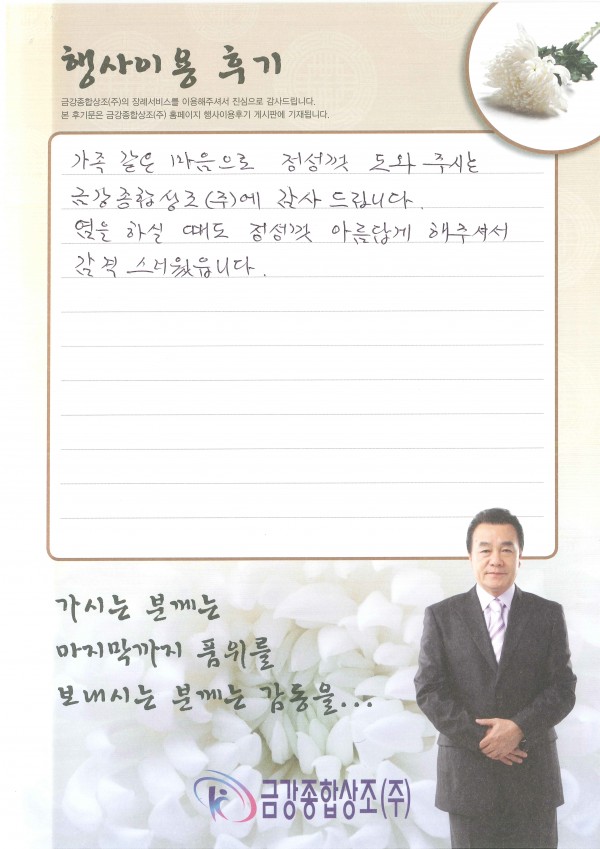 행사이용 후기
금강종합상조(주)의 장례서비스를 이용해주셔서 진심으로 감사드립니다.
본 후기문은 금강종합상조(주) 홈페이지 행사이용후기 게시판에 기재됩니다.
가족 같은 마음으로 정성껏 도와 주시는
금강종합상조(주)에 감사 드립니다.
염을 하실 때도 정성껏 아름답게 해주셔서
감격 스러웠읍니다.
가시는 분께는
마지막까지 품위를
보내시는 분께는 감동을...
금강종합상조(주)